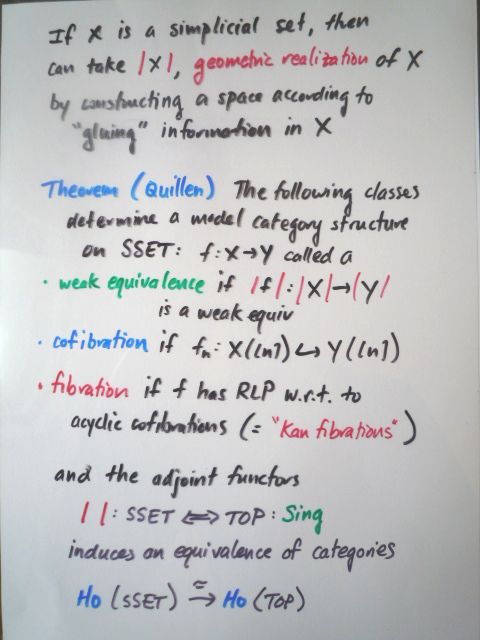 If X is a simplicial set, then
can take |X|, geometric realization of X
by constructing a space according to
"gluing" information in X
Theorem (Quillen) The following classes
determine a model category structure
on SSET: f: X→Y called a
· weak equivalence if |f|: |X|→|Y|
is a weak equiv
· cofibration if fₙ: X([n]) ↪ Y([n])
· fibration if f has RLP w.r.t. to
acyclic cofibrations (= "Kan fibrations")
and the adjoint functors
| |: SSET ⟺ TOP: Sing
induces an equivalence of categories
Ho (SSET) ≅→ Ho (TOP)